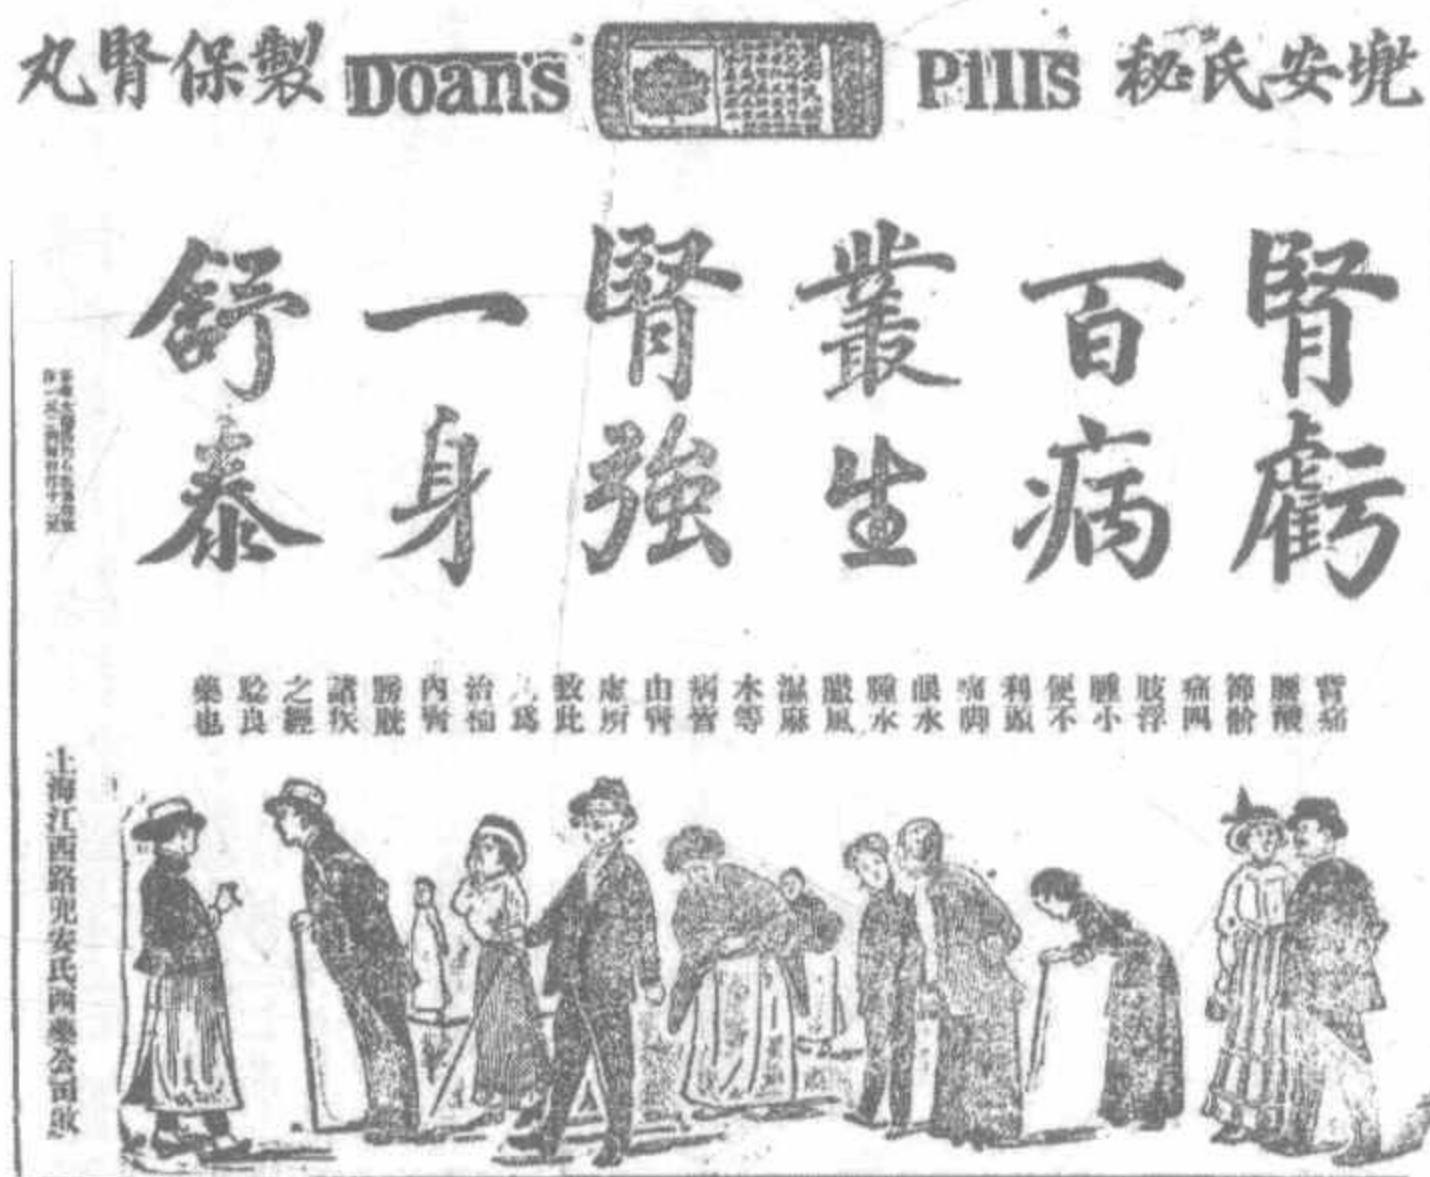 兜安氏秘 Pills Doan's 製保腎丸
腎虧
百病
叢生
腎強
一身
舒泰
背痛
腰酸
節骱
痛四
肢浮
腫小
便不
利頭
痛脚
眼水
腫水
臌風
濕麻
木等
病皆
由腎
虛所
致此
丸為
治
內腎
膀胱
諸疾
之經
騐良
藥也
上海江西路兜安氏西藥公司啟